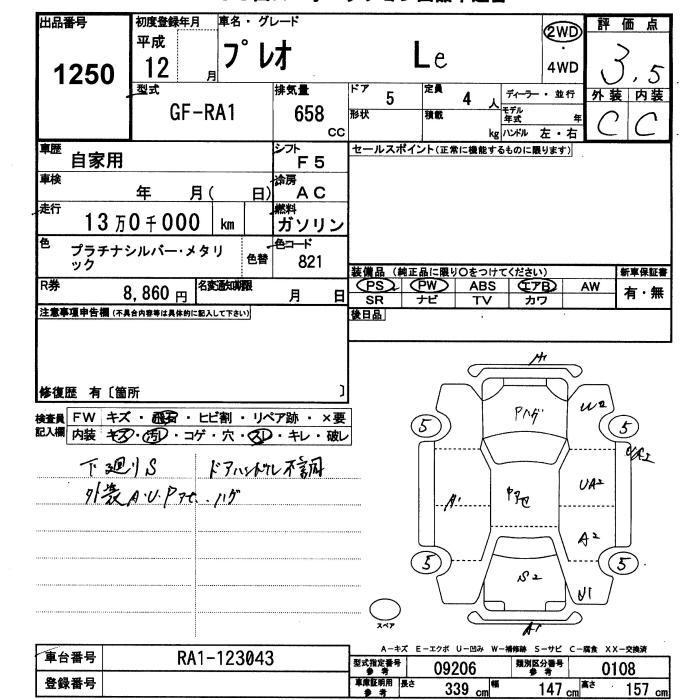 出品番号
1250
初度登録年月
平成
12 月
車名・グレード
プレオ Le
2WD
・
4WD
評価点
3.5
外装 内装
C C
型式
GF-RA1
排気量
658
CC
ドア
5
定員
4 人
ディーラー・並行
形状
積載
kg
モデル年式 年
ハンドル 左・右
車歴
自家用
シフト
F5
車検
年 月( 日)
冷房
AC
走行
13万0千000 km
燃料
ガソリン
色
プラチナシルバー・メタリ
ック
色替
色コード
821
R券
8,860円
名変通知期限
月 日
セールスポイント(正常に機能するものに限ります)
装備品(純正品に限り〇をつけてください)
PS PW ABS エアB AW
SR ナビ TV カワ
新車保証書
有・無
後日品
注意事項申告欄(不具合内容等は具体的に記入して下さい)
修復歴 有〔箇所 〕
検査員
記入欄
FW キズ・飛石・ヒビ割・リペア跡・×要
内装 キズ・汚レ・コゲ・穴・スレ・キレ・破レ
下廻りS
ドアハンドル不調
外装A.U.Pアセ、ハゲ
Pハゲ
W2
5
5
A1
Pアセ
UA2
A2
5
5
S2
U1
A1
スペア
A-キズ E-エクボ U-凹み W-補修跡 S-サビ C-腐食 XX-交換済
車台番号
RA1-123043
登録番号
型式指定番号
参考
09206
類別区分番号
参考
0108
車庫証明用
参考
長さ 339 cm
幅 147 cm
高さ 157 cm